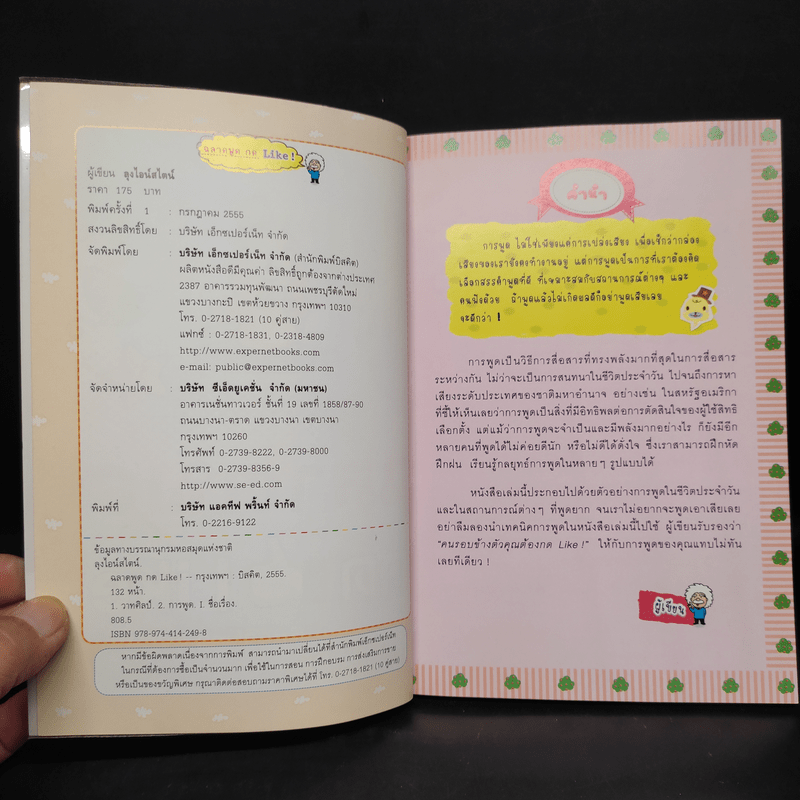 ฉลาดพูด กด Like !
ผู้เขียน ลุงไอน์สไตน์
ราคา 175 บาท
พิมพ์ครั้งที่ 1 : กรกฎาคม 2555
สงวนลิขสิทธิ์โดย : บริษัท เอ็กซเปอร์เน็ท จำกัด
จัดพิมพ์โดย : บริษัท เอ็กซเปอร์เน็ท จำกัด (สำนักพิมพ์บิสคิต)
ผลิตหนังสือดีมีคุณค่า ลิขสิทธิ์ถูกต้องจากต่างประเทศ
2387 อาคารรวมทุนพัฒนา ถนนเพชรบุรีตัดใหม่
แขวงบางกะปิ เขตห้วยขวาง กรุงเทพฯ 10310
โทร. 0-2718-1821 (10 คู่สาย)
แฟกซ์ : 0-2718-1831, 0-2318-4809
http://www.expernetbooks.com
e-mail: public@expernetbooks.com
จัดจำหน่ายโดย : บริษัท ซีเอ็ดยูเคชั่น จำกัด (มหาชน)
อาคารเนชั่นทาวเวอร์ ชั้นที่ 19 เลขที่ 1858/87-90
ถนนบางนา-ตราด แขวงบางนา เขตบางนา
กรุงเทพฯ 10260
โทรศัพท์ 0-2739-8222, 0-2739-8000
โทรสาร 0-2739-8356-9
http://www.se-ed.com
พิมพ์ที่ : บริษัท แอคทีฟ พริ้นท์ จำกัด
โทร. 0-2216-9122
ข้อมูลทางบรรณานุกรมหอสมุดแห่งชาติ
ลุงไอน์สไตน์.
ฉลาดพูด กด Like! -- กรุงเทพฯ : บิสคิต, 2555.
132 หน้า.
1. วาทศิลป์. 2. การพูด. I. ชื่อเรื่อง.
808.5
ISBN 978-974-414-249-8
หากมีข้อผิดพลาดเนื่องจากการพิมพ์ สามารถนำมาเปลี่ยนได้ที่สำนักพิมพ์เอ็กซเปอร์เน็ท
ในกรณีที่ต้องการซื้อเป็นจำนวนมาก เพื่อใช้ในการสอน การฝึกอบรม การส่งเสริมการขาย
หรือเป็นของขวัญพิเศษ กรุณาติดต่อสอบถามราคาพิเศษได้ที่ โทร. 0-2718-1821 (10 คู่สาย)
คำนำ
การพูด ไม่ใช่เพียงแค่การเปล่งเสียง เพื่อเช็กว่ากล่อง
เสียงของเรายังคงทำงานอยู่ แต่การพูดเป็นการที่เราต้องคิด
เลือกสรรคำพูดที่ดี ที่เหมาะสมกับสถานการณ์ต่างๆ และ
คนฟังด้วย ถ้าพูดแล้วไม่เกิดผลดีก็อย่าพูดเสียเลย
จะดีกว่า !
การพูดเป็นวิธีการสื่อสารที่ทรงพลังมากที่สุดในการสื่อสาร
ระหว่างกัน ไม่ว่าจะเป็นการสนทนาในชีวิตประจำวัน ไปจนถึงการหา
เสียงระดับประเทศของชาติมหาอำนาจ อย่างเช่น ในสหรัฐอเมริกา
ที่ชี้ให้เห็นเลยว่าการพูดเป็นสิ่งที่มีอิทธิพลต่อการตัดสินใจของผู้ใช้สิทธิ
เลือกตั้ง แต่แม้ว่าการพูดจะจำเป็นและมีพลังมากอย่างไร ก็ยังมีอีก
หลายคนที่พูดได้ไม่ค่อยดีนัก หรือไม่ดีได้ดั่งใจ ซึ่งเราสามารถฝึกหัด
ฝึกฝน เรียนรู้กลยุทธ์การพูดในหลายๆ รูปแบบได้
หนังสือเล่มนี้ประกอบไปด้วยตัวอย่างการพูดในชีวิตประจำวัน
และในสถานการณ์ต่างๆ ที่พูดยาก จนเราไม่อยากจะพูดเอาเสียเลย
อย่าลืมลองนำเทคนิคการพูดในหนังสือเล่มนี้ไปใช้ ผู้เขียนรับรองว่า
"คนรอบข้างตัวคุณต้องกด Like!" ให้กับการพูดของคุณแทบไม่ทัน
เลยทีเดียว !
ผู้เขียน